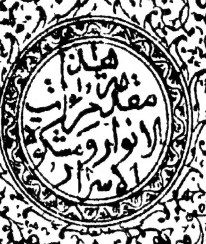 هذا
مقدمه مرات
الانوار ومشكوة
الاسرار